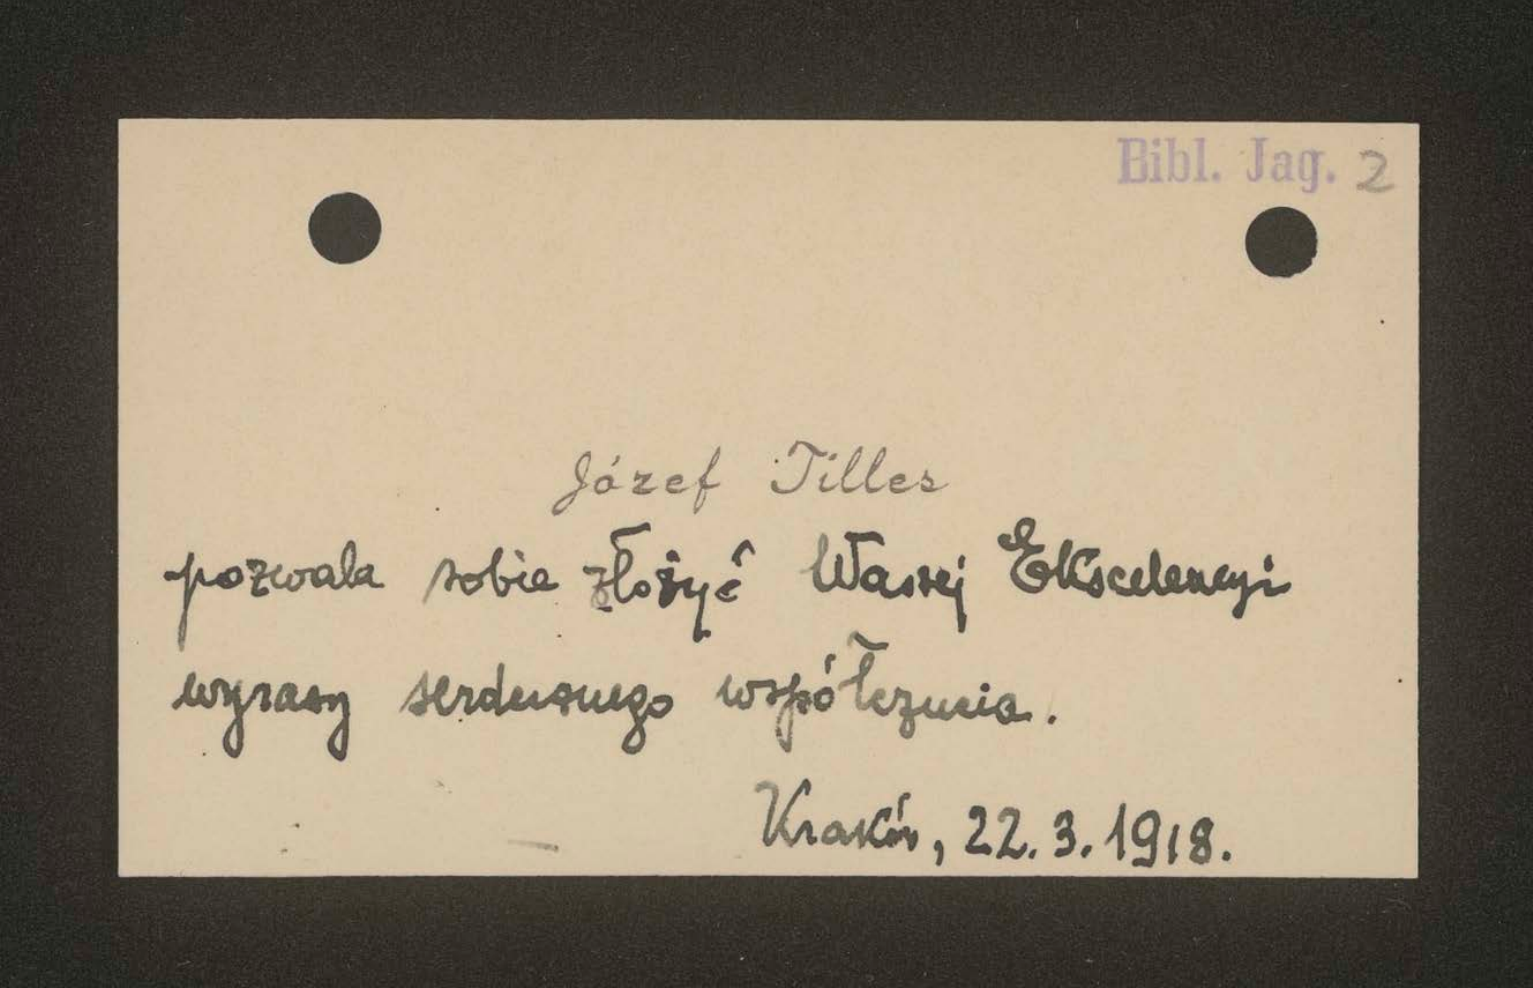 Bibl. Jag. 2
Józef Tilles
pozwala sobie złożyć Waszej Ekscelencyi
wyrazy serdecznego współczucia.
Kraków, 22.3.1918.